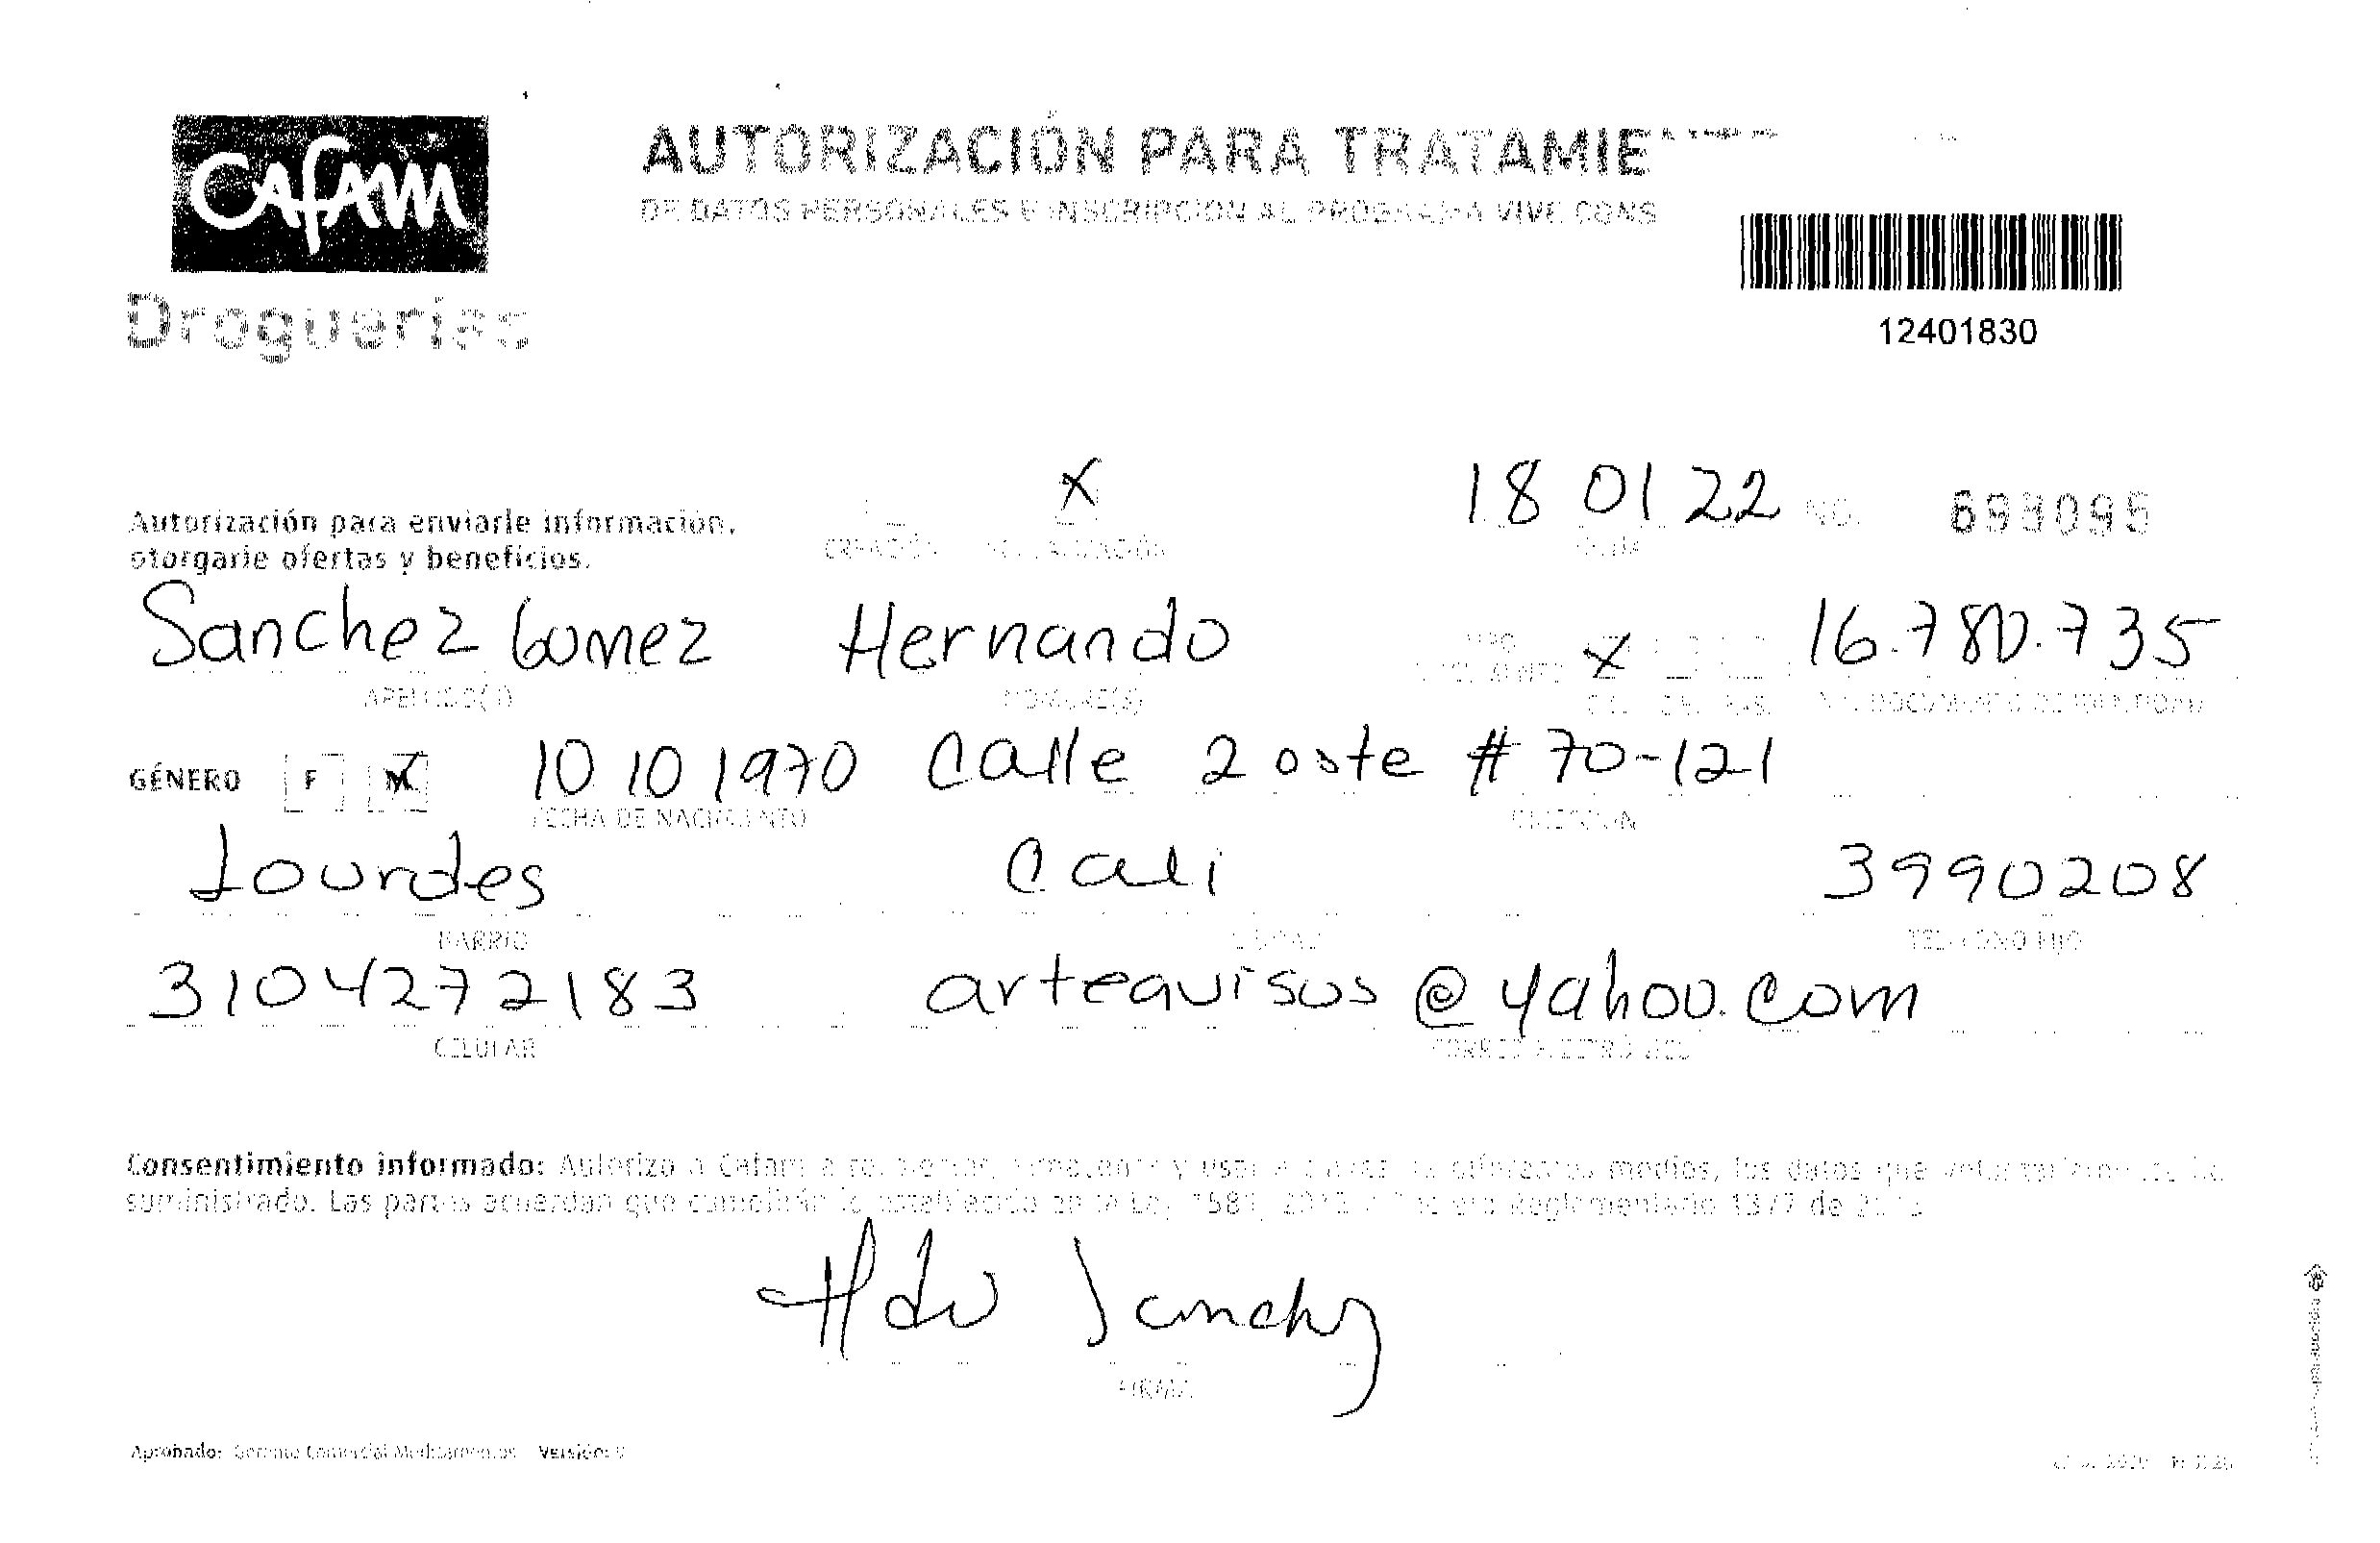 Cafam
Droguerías
AUTORIZACIÓN PARA TRATAMIE
DE DATOS PERSONALES E INSCRIPCIÓN AL PROGRAMA VIVE CONS
12401830
Autorización para enviarle información,
otorgarle ofertas y beneficios.
CREACIÓN X ACTUALIZACIÓN
18 01 22 NO. 693095
Sanchez Gomez Hernando X 16.780.735
APELLIDO(S) NOMBRE(S) TIPO DOCUMENTO C.C. C.E. PAS. No. DOCUMENTO DE IDENTIDAD
GÉNERO F M X 10 10 1970 Calle 2 oste # 70-121
FECHA DE NACIMIENTO DIRECCIÓN
Lourdes Cali 3990208
BARRIO CIUDAD TELÉFONO FIJO
3104272183 artequisos@yahoo.com
CELULAR CORREO ELECTRÓNICO
Consentimiento informado: Autorizo a Cafam a y usar a los diferentes medios, los datos que voluntariamente he
suministrado. Las partes acuerdan que cumplirán lo establecido en la Ley 1581, 2012 Reglamentario 1377 de
Hdo Sanchez
FIRMA
Aprobado: Gerente Comercial Medicamentos Versión: